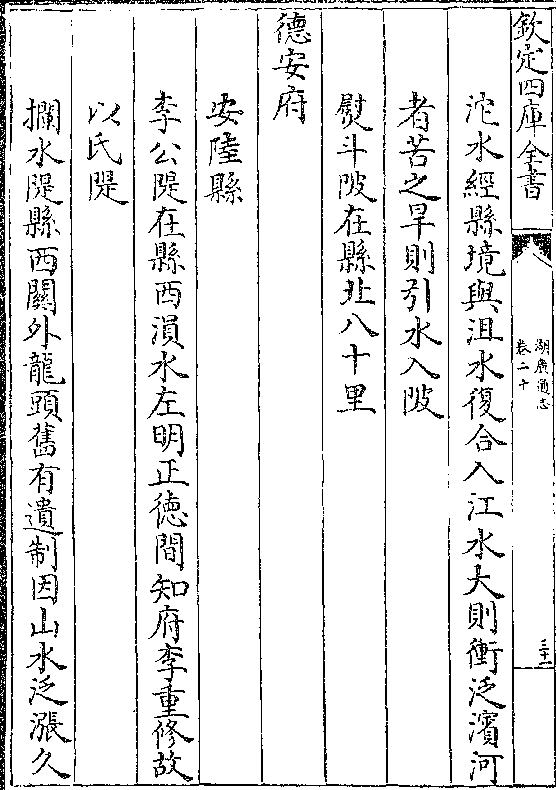 欽定四庫全書
湖廣通志
卷二十
三十一
沱水經縣境與沮水復合入江水大則衝泛濱河
者苦之旱則引水入陂
熨斗陂在縣北八十里
德安府
安陸縣
李公隄在縣西溳水左明正德間知府李重修故
以氏隄
攔水隄縣西關外龍頭舊有遺制因山水泛漲久